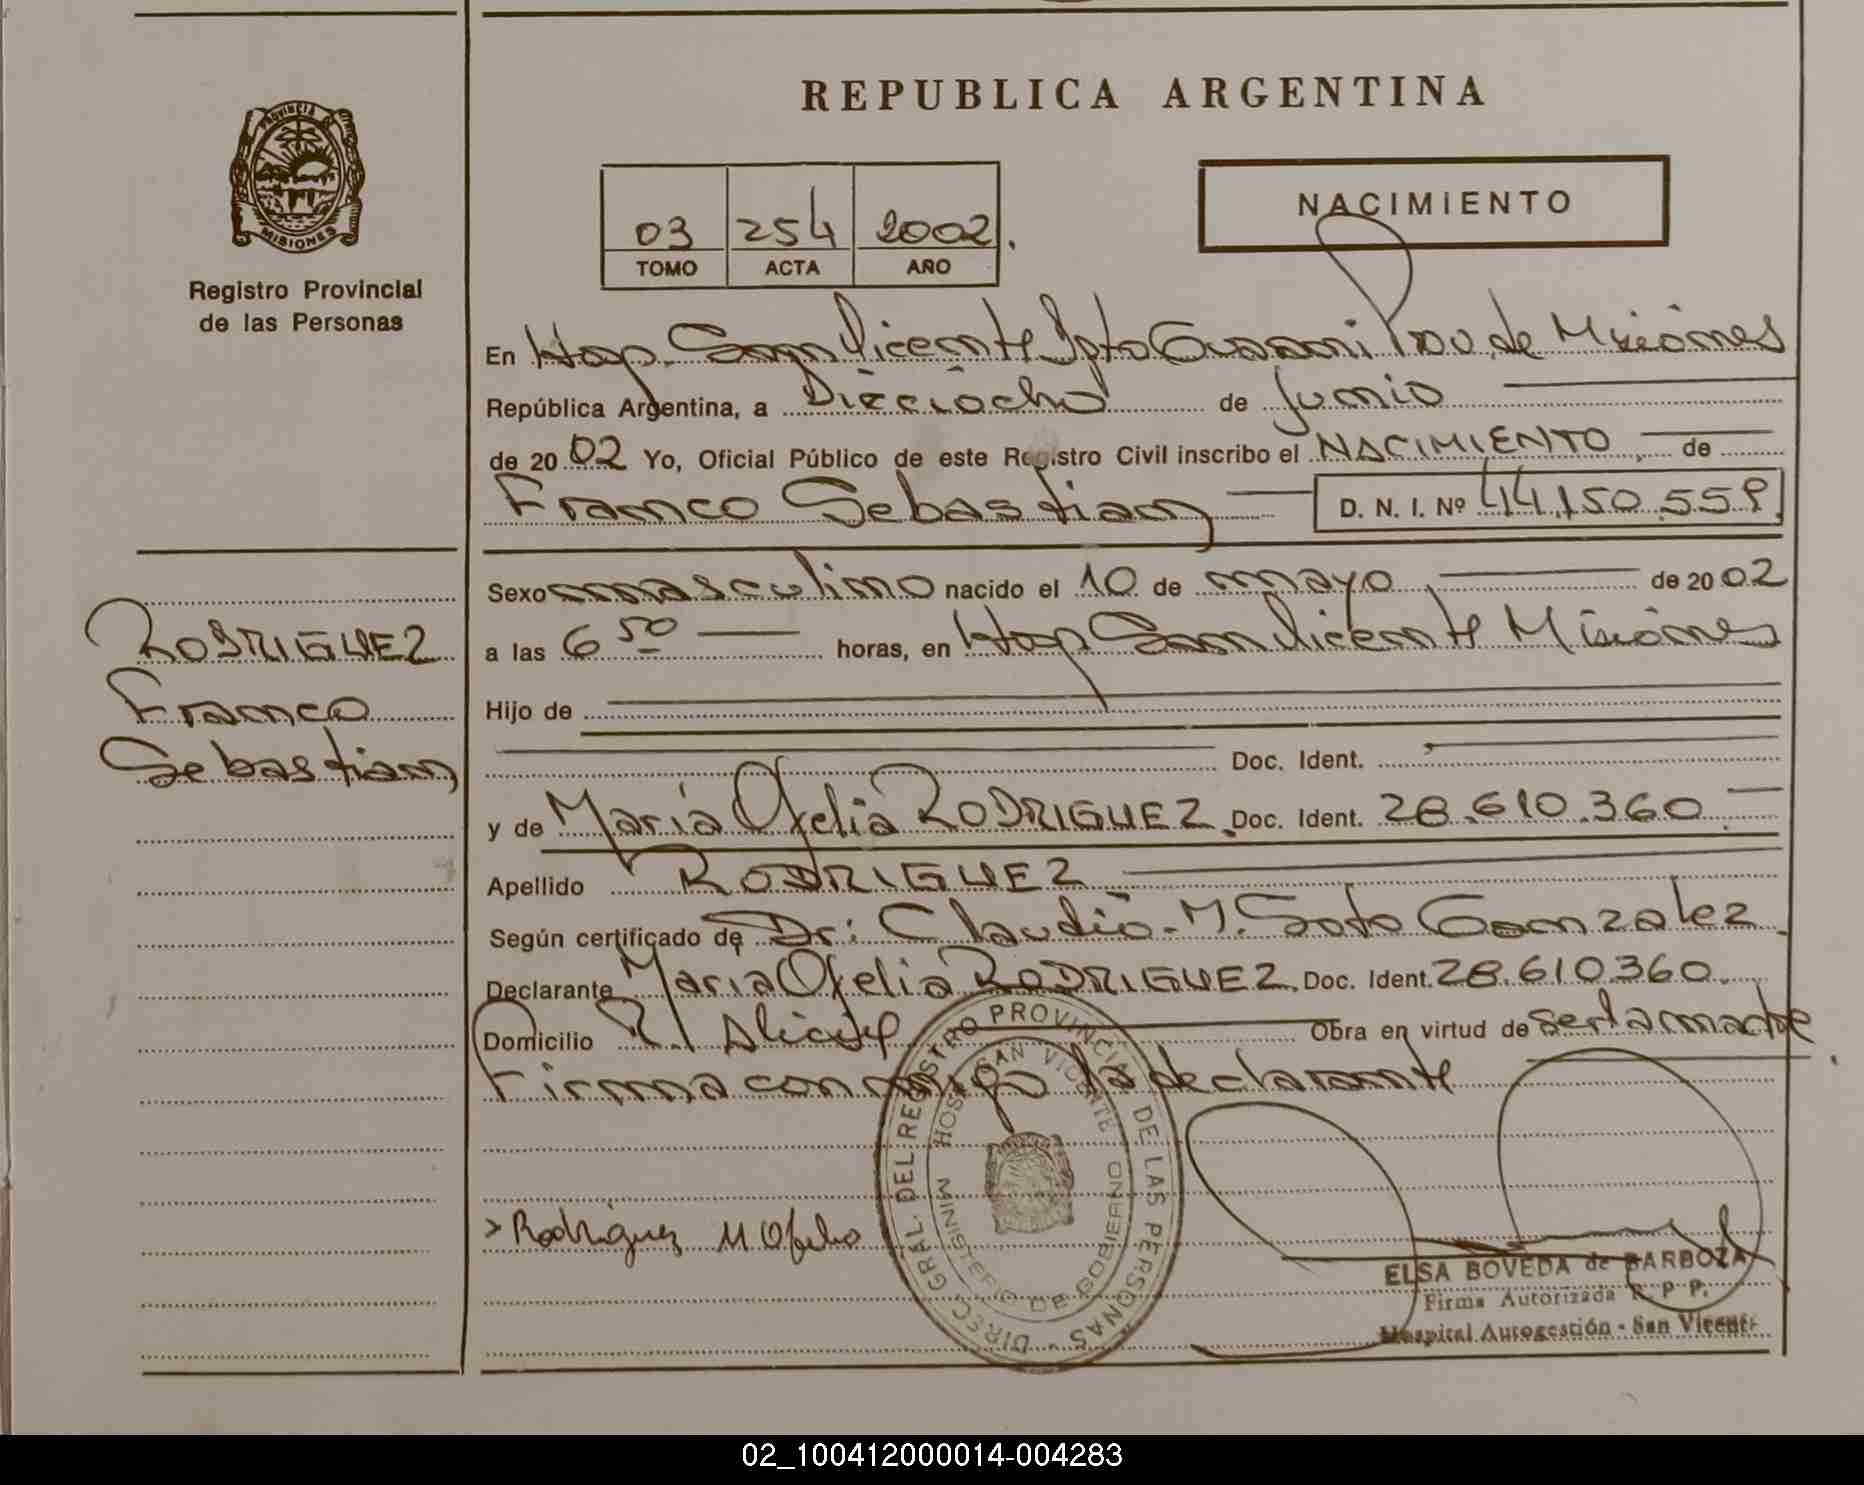 REPUBLICA ARGENTINA
PROVINCIA DE
MISIONES
Registro Provincial
de las Personas
03 254 2002.
TOMO ACTA AÑO
NACIMIENTO
En Hosp. San Vicente Dpto Guarani Prov. de Misiónes
República Argentina, a Dieciócho de Junio
de 2002 Yo, Oficial Público de este Registro Civil inscribo el NACIMIENTO de
Franco Sebastian D. N. I. Nº 44.150.559
Sexo masculino nacido el 10 de mayo de 2002
a las 6 50 horas, en Hosp San Vicente Misiónes
Hijo de
Doc. Ident.
y de María Ofelia RODRIGUEZ. Doc. Ident. 28.610.360
Apellido RODRIGUEZ
Según certificado de Dr: Claudio. M. Soto Gonzalez
Declarante María Ofelia RODRIGUEZ. Doc. Ident. 28.610.360.
Domicilio Obra en virtud de ser la madre
Firma conmigo la declarante
RODRIGUEZ
Franco
Sebastian
>Rodriguez M Ofelia
DIREC. GRAL. DEL REGISTRO PROVINCIAL DE LAS PERSONAS -
HOSP. SAN VICENTE
MINISTERIO DE GOBIERNO
ELSA BOVEDA de BARBOZA
Firma Autorizada R. P. P.
Hospital Autogestión - San Vicente
02_100412000014-004283